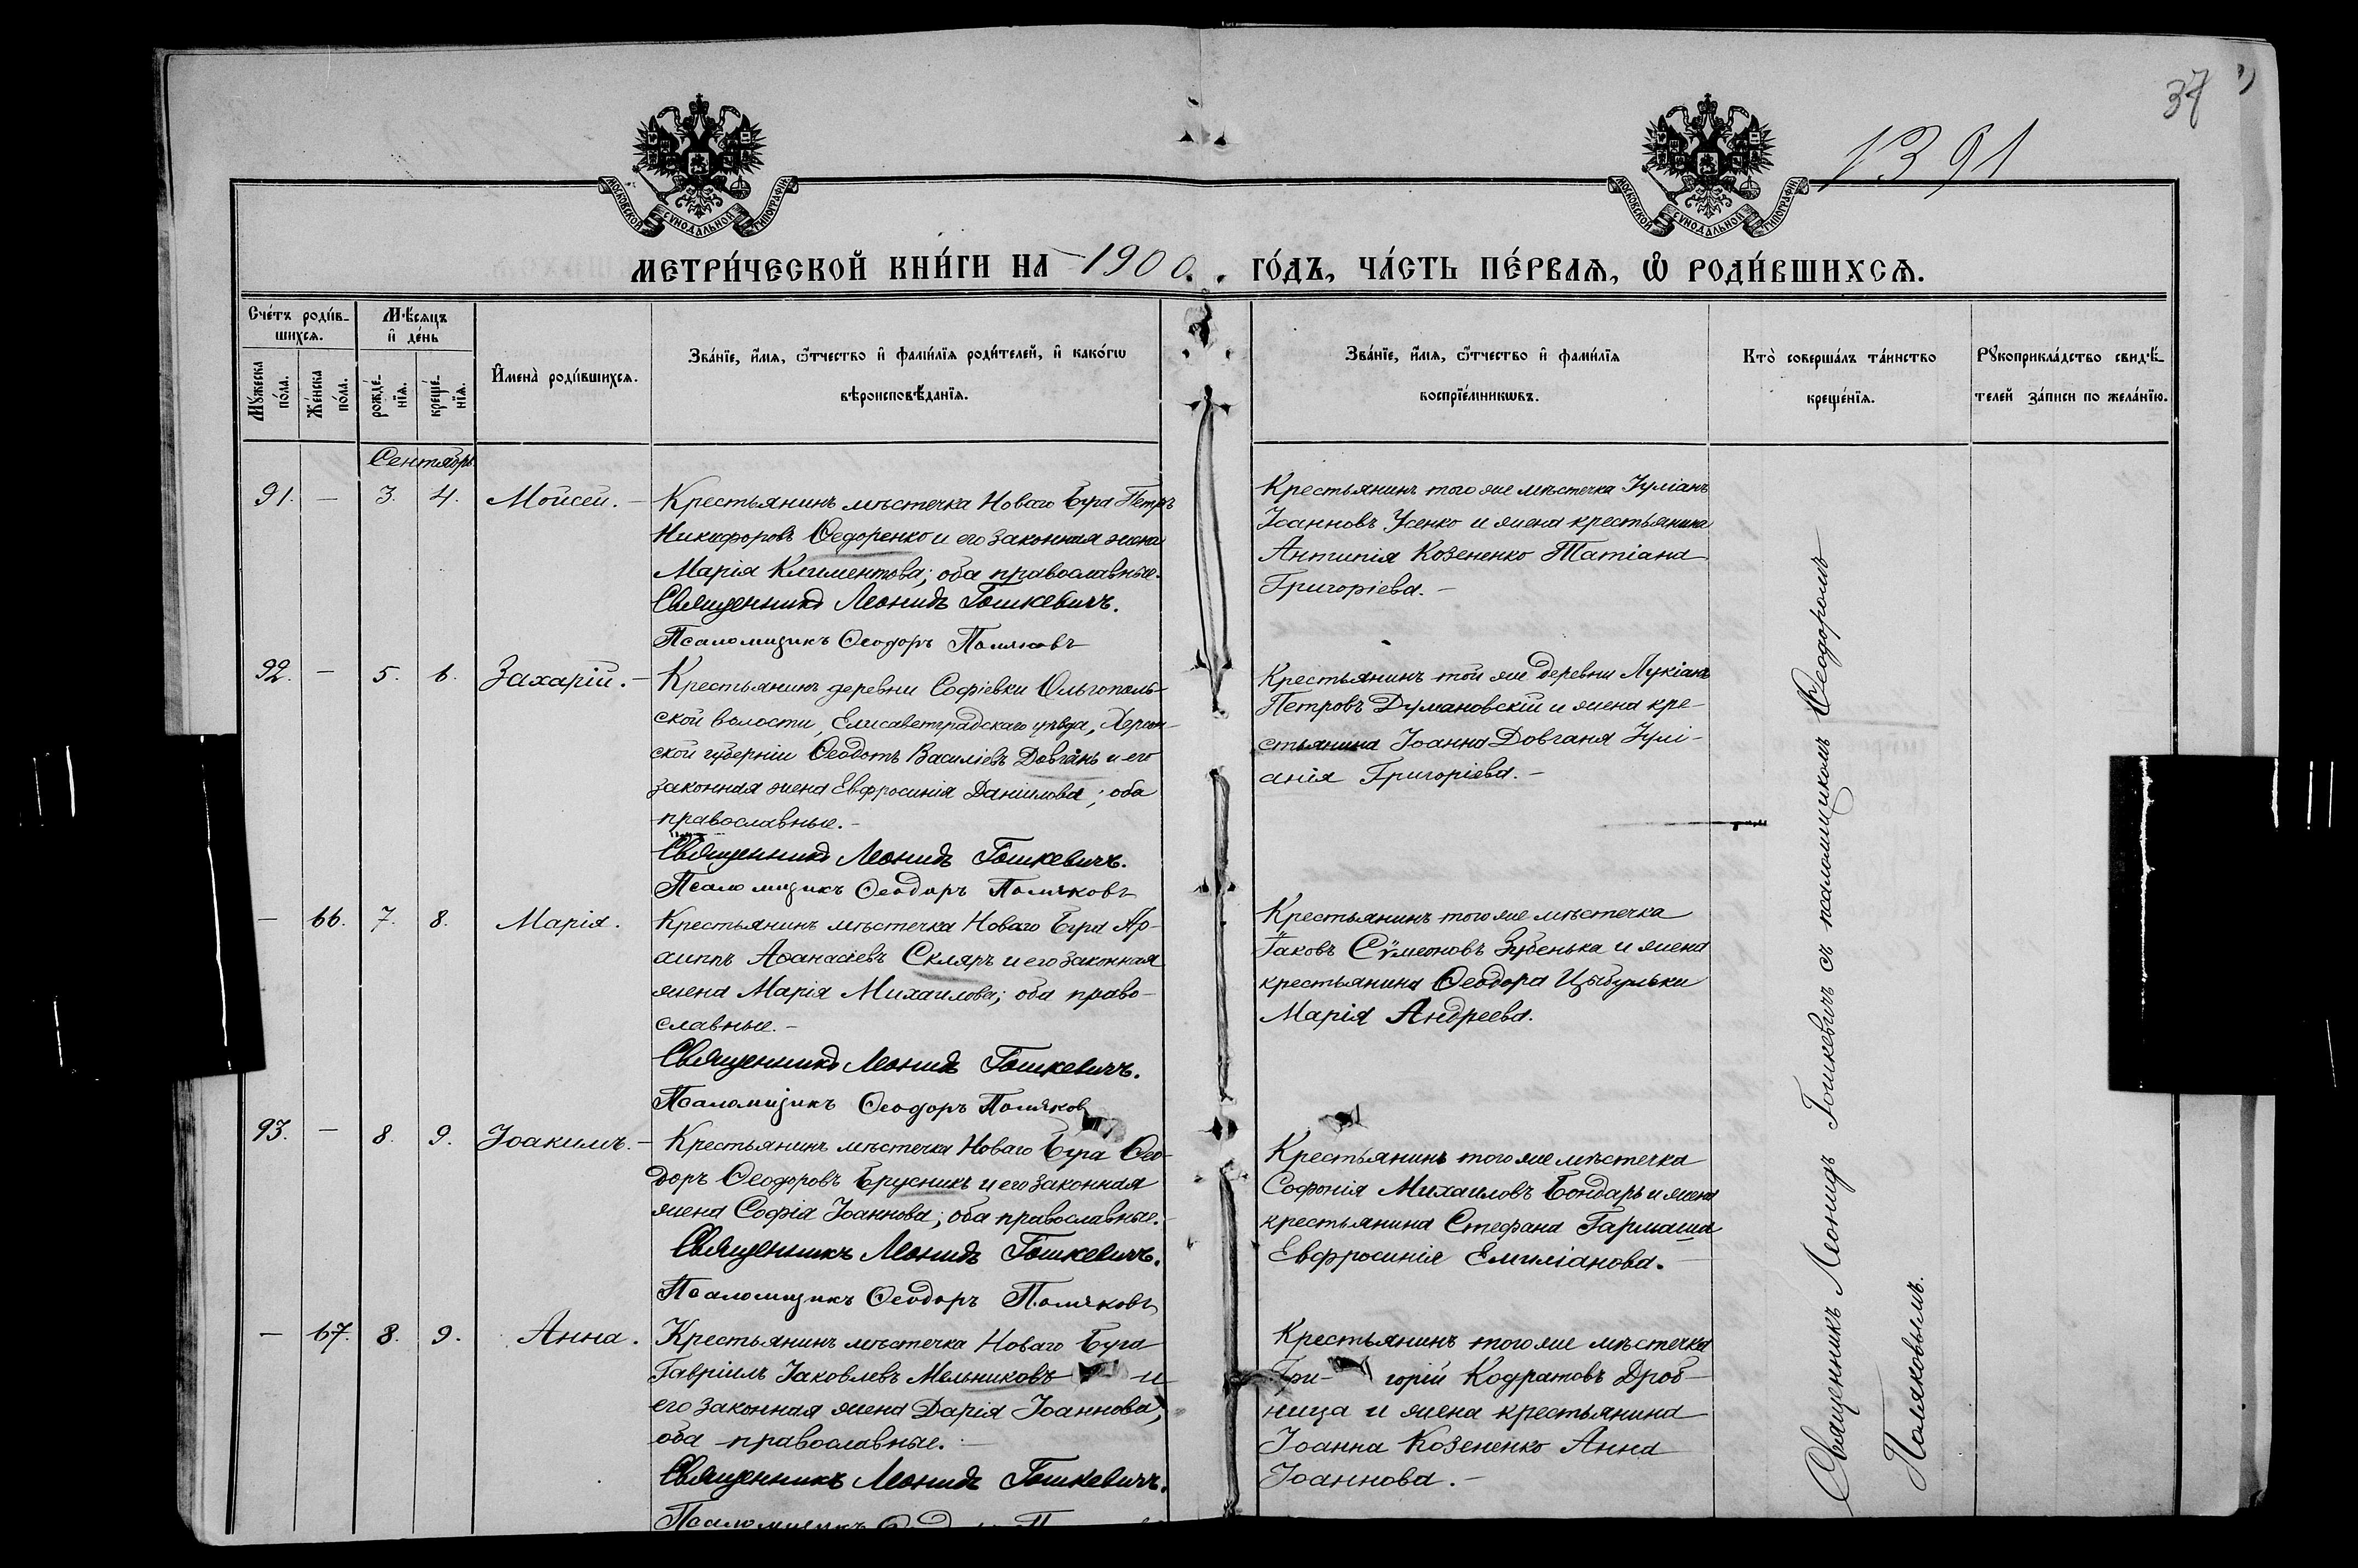 37
1391
МОСКОВСКОЙ СѴНОДАЛЬНОЙ ТИПОГРАФІИ.
МОСКОВСКОЙ СѴНОДАЛЬНОЙ ТИПОГРАФІИ.
МЕТРИ́ЧЕСКОЙ КНИ́ГИ НА 1900. ГО́ДЪ, ЧА́СТЬ ПЕ́РВАѦ, Ѡ҆ РОДИ́ВШИХСѦ.
Сче́тъ роди́в-
шихсѧ.
Мꙋ́жеска по́ла.
Же́нска по́ла.
Мѣ́сѧцъ
и҆ де́нь
рожде́-нїѧ.
креще́-нїѧ.
И҆мена̀ роди́вшихсѧ.
Зва́нїе, и҆́мѧ, ѻ҆́тчество и҆ фами́лїѧ роди́телей, и҆ како́гѡ
вѣроисповѣ́данїѧ.
Зва́нїе, и҆́мѧ, ѻ҆́тчество и҆ фами́лїѧ
воспрїе́мникѡвъ.
Кто̀ соверша́лъ та́инство
креще́нїѧ.
Рꙋкоприкла́дство свидѣ́-
телей за́писи по жела́нїю.
Сентябрь
91. — 3. 4. Моисей. —
Крестьянинъ мѣстечка Новаго Буга Петръ
Никифоровъ Ѳедоренко и его законная жена
Марія Климентова; оба православные.
Священникъ Леонидъ Гошкевичъ.
Псаломщикъ Ѳеодоръ Поляковъ
Крестьянинъ того же мѣстечка Іуліанъ
Іоанновъ Усенко и жена крестьянина
Антипія Козененко Татіана
Григоріева. —
92. — 5. 6. Захарій. —
Крестьянинъ деревни Софіевки Ольгополь-
ской волости, Елисаветградскаго уѣзда, Херсон-
ской губерніи Ѳеодотъ Василіевъ Довгань и его
законная жена Евфросинія Даніилова; оба
православные. —
Священникъ Леонидъ Гошкевичъ.
Псаломщикъ Ѳеодоръ Поляковъ
Крестьянинъ той же деревни Лукіанъ
Петровъ Думановскій и жена кре-
стьянина Іоанна Довганя Іулі-
анія Григоріева. —
— 66. 7. 8. Марія.
Крестьянинъ мѣстечка Новаго Буга Ар-
хиппъ Аѳанасіевъ Скляръ и его законная
жена Марія Михаилова; оба право-
славные. —
Священникъ Леонидъ Гошкевичъ.
Псаломщикъ Ѳеодоръ Поляков
Крестьянинъ того же мѣстечка
Іаковъ Сѵмеоновъ Зубенька и жена
крестьянина Ѳеодора Цыбульки
Марія Андреева.
93. — 8. 9. Іоакимъ. —
Крестьянинъ мѣстечка Новаго Буга Ѳео-
доръ Ѳеодоровъ Брусникъ и его законная
жена Софія Іоаннова; оба православные. —
Священникъ Леонидъ Гошкевичъ.
Псаломщикъ Ѳеодоръ Поляковъ
Крестьянинъ того же мѣстечка
Софонія Михаиловъ Бондарь и жена
крестьянина Стефана Гармаша
Евфросинія Емиліанова.
— 67. 8. 9. Анна.
Крестьянинъ мѣстечка Новаго Буга
Гавріилъ Іаковлевъ Мельниковъ и
его законная жена Дарія Іоаннова,
оба православные. —
Священникъ Леонидъ Гошкевичъ.
Псаломщикъ
Крестьянинъ того же мѣстечка
Гри- горій Кодратовъ Дроб-
ница и жена крестьянина
Іоанна Козененко Анна
Іоаннова. —
Священникъ Леонидъ Гошкевичъ съ псаломщикомъ Ѳеодоромъ
Поляковымъ.